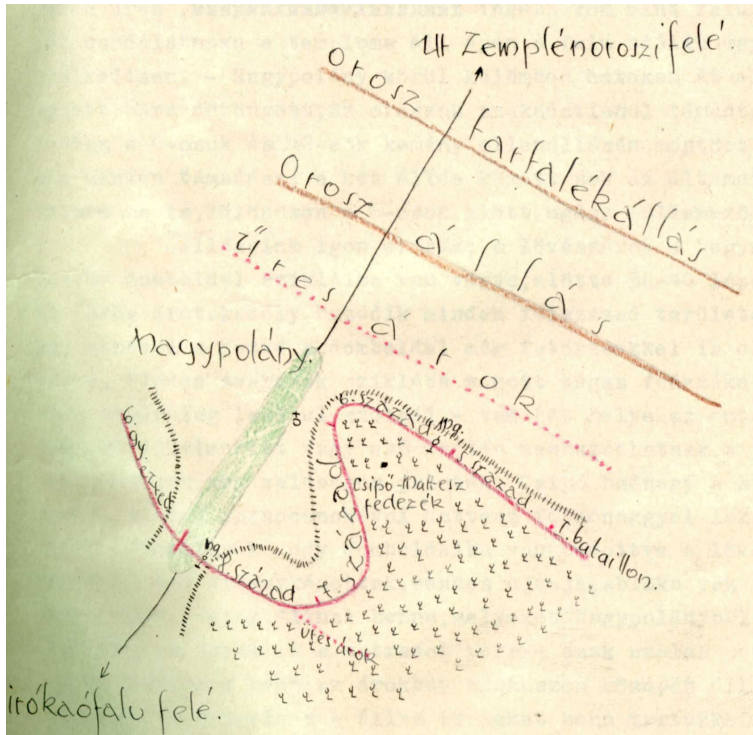 Út Zemplénoroszi felé.
Orosz tartalékállás
Orosz állás
Üres árok
nagypolány.
6.
gy
ezred
6. század
mg.
5 század
I. bataillon.
Csipő-Matersz
fedezék
7 század
mg.
8 század
ütegárok
irókaófalu felé.